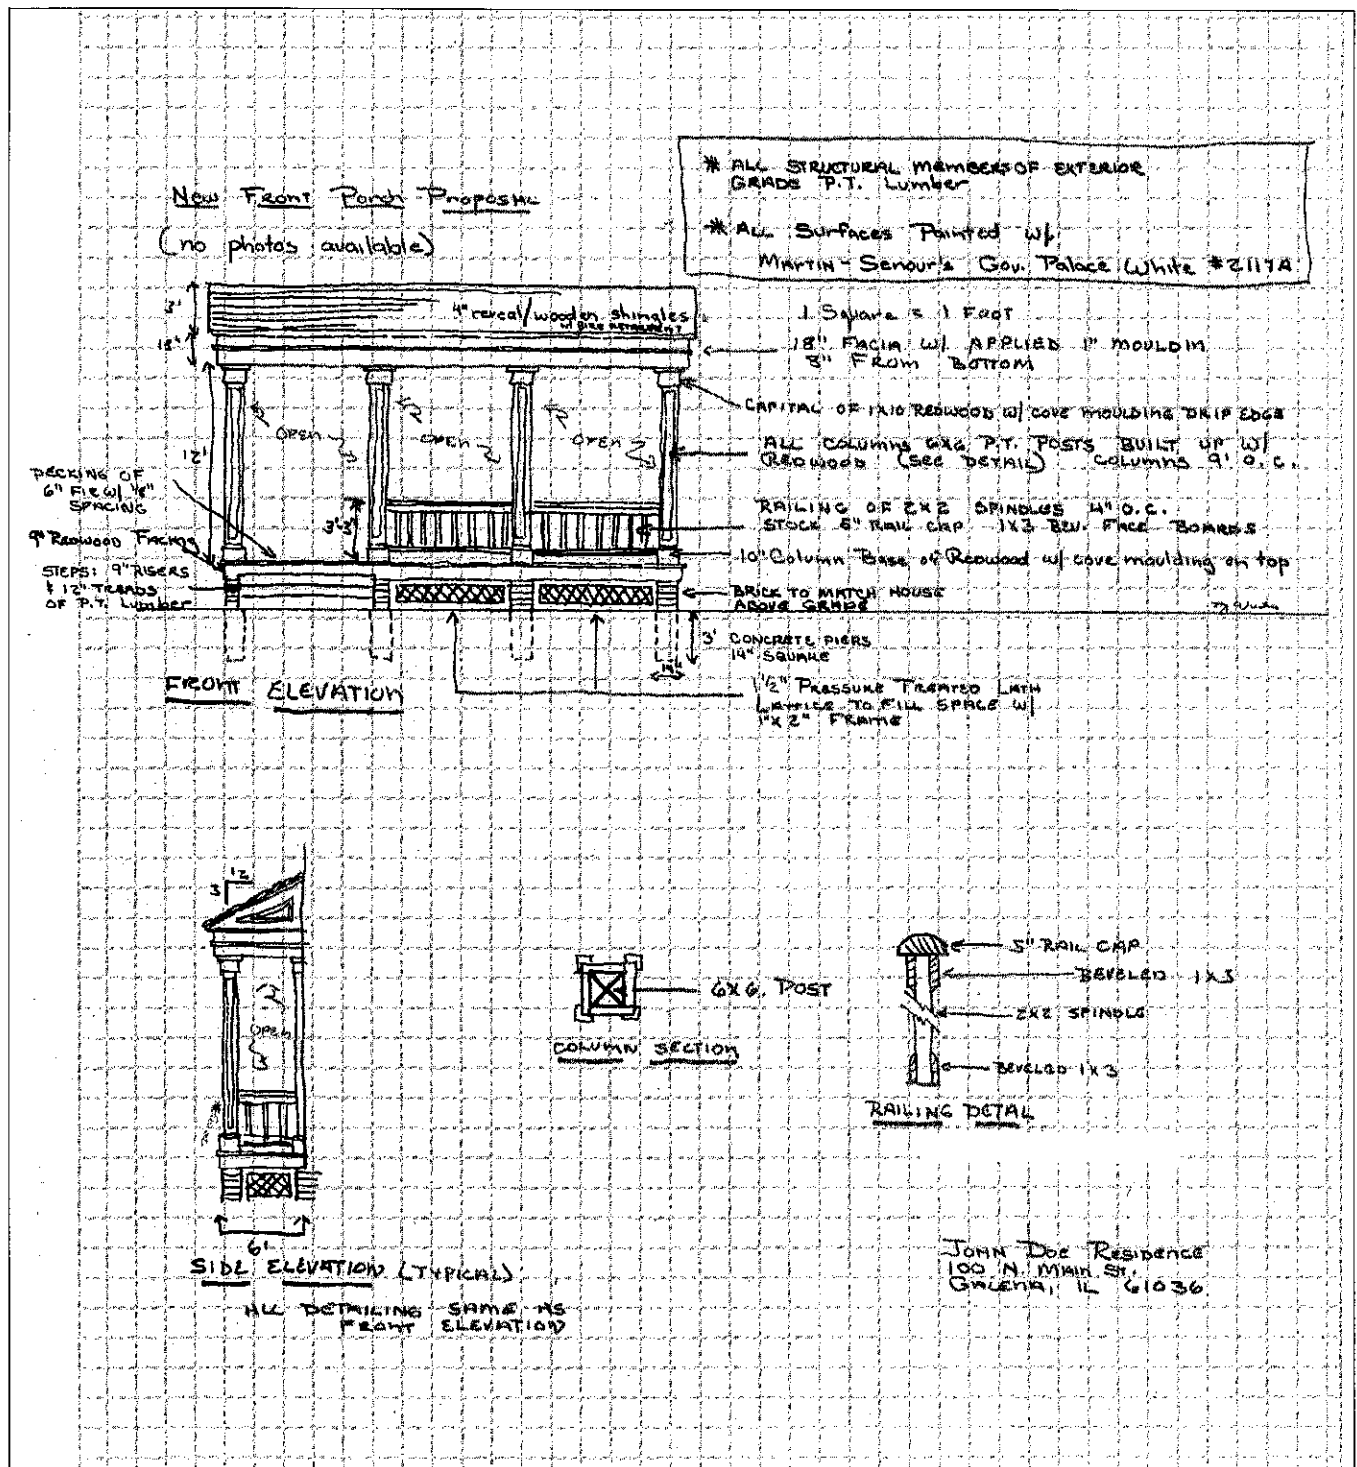 * ALL STRUCTURAL MEMBERS OF EXTERIOR
GRADE P.T. Lumber
* ALL Surfaces Painted w/
MARTIN-Senour's Gov. Palace White #2117A
New Front Porch Proposal
(no photos available)
3'
4" reveal/wooden shingles
18"
1 Square = 1 FOOT
18" FACIA W/ APPLIED 1" MOULDIN
8" FROM BOTTOM
CAPITAL OF 1X10 REDWOOD W/ COVE MOULDING DRIP EDGE
OPEN
OPEN
OPEN
ALL COLUMNS 6X6 P.T. POSTS BUILT UP W/
REDWOOD (SEE DETAIL) COLUMNS 9' O.C.
12'
DECKING OF
6" FIR W/ 1/8"
SPACING
3'-3"
RAILING OF 2X2 SPINDLES 4" O.C.
STOCK 5" RAIL CAP 1X3 BEV. FACE BOARDS
9" REDWOOD FACIA
10" Column Base of Redwood w/ cove moulding on top
STEPS: 9" RISERS
& 12" TREADS
OF P.T. Lumber
BRICK TO MATCH HOUSE
ABOVE GRADE
3' CONCRETE PIERS
14" SQUARE
14"
FRONT ELEVATION
1 1/2" PRESSURE TREATED LATH
LATTICE TO FILL SPACE W/
1"X 2" FRAME
12
3
OPEN
6'
SIDE ELEVATION (TYPICAL)
ALL DETAILING SAME AS
FRONT ELEVATION
6X6 POST
COLUMN SECTION
5" RAIL CAP
BEVELED 1X3
2X2 SPINDLE
BEVELED 1X3
RAILING DETAL
JOHN DOE RESIDENCE
100 N. MAIN ST.
GALENA, IL 61036